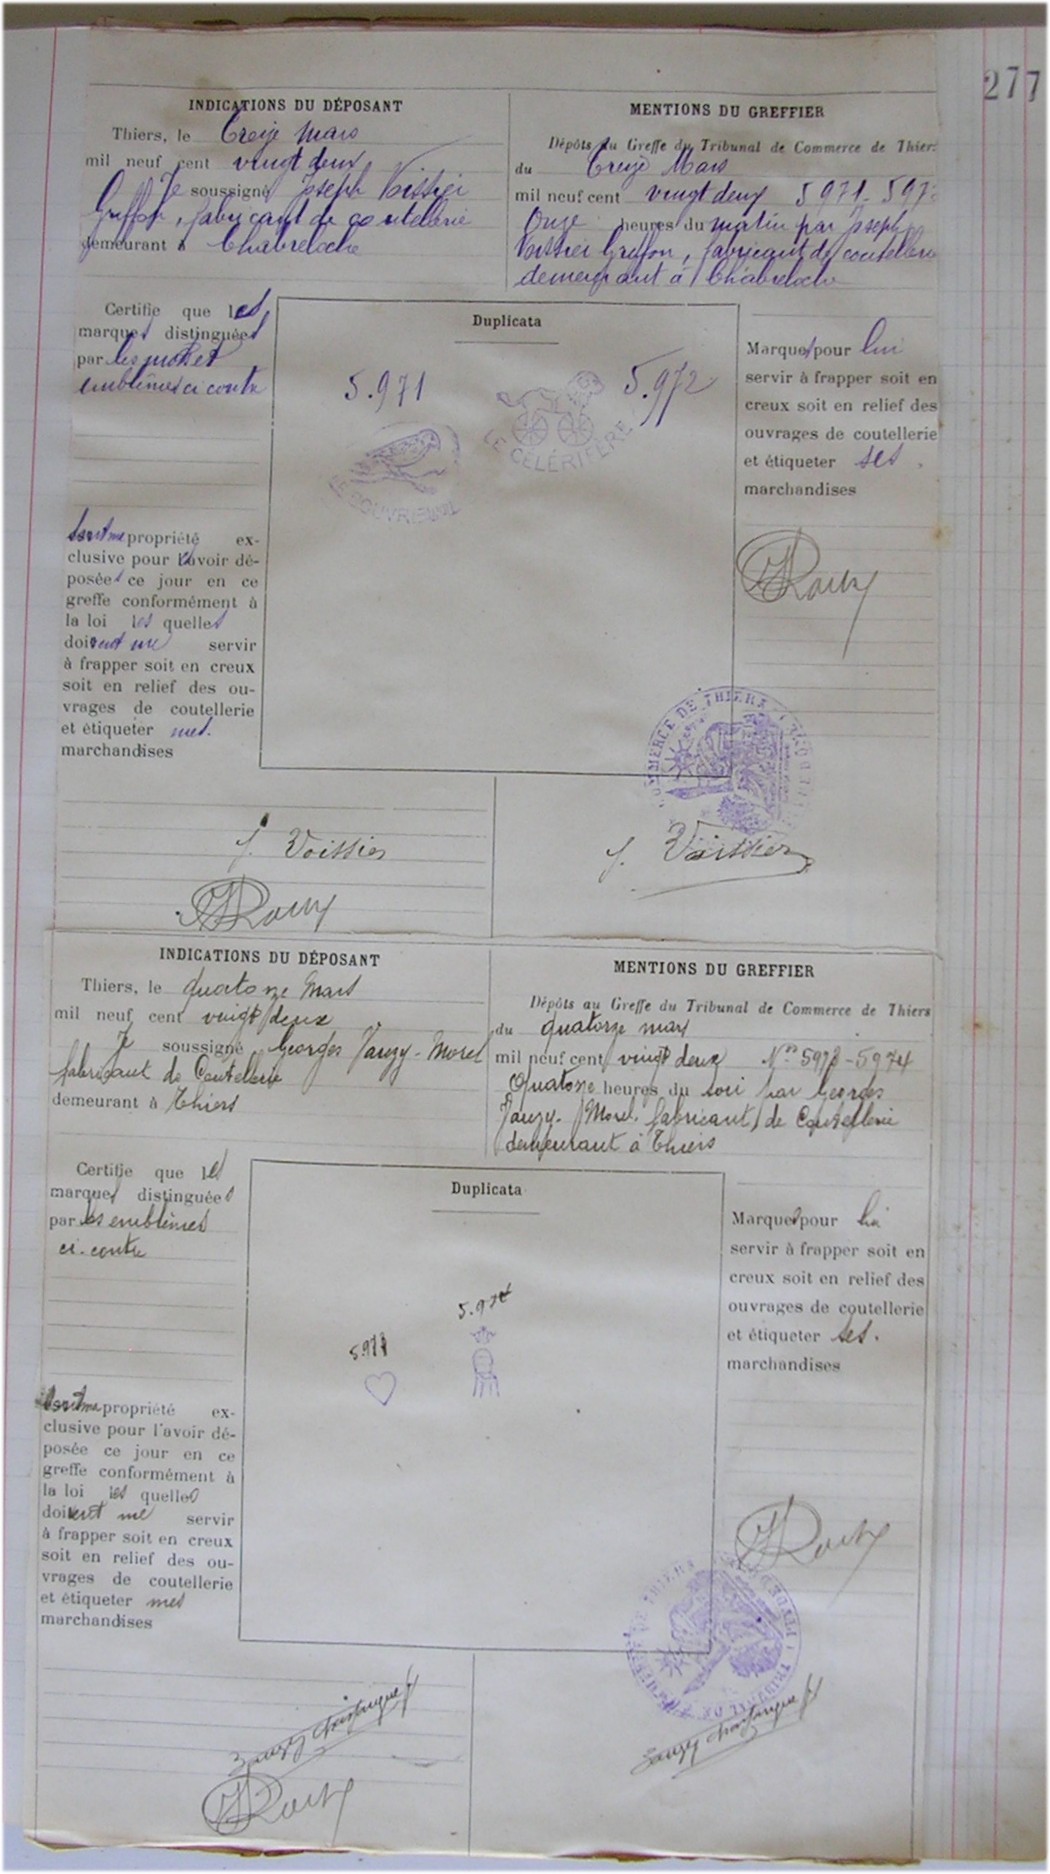 277
INDICATIONS DU DÉPOSANT
Thiers, le treize Mars
mil neuf cent vingt deux
Je soussigné Joseph Voissier
Griffon, fabricant de coutellerie
demeurant à Chabreloche
MENTIONS DU GREFFIER
Dépôts au Greffe du Tribunal de Commerce de Thiers
du treize Mars
mil neuf cent vingt deux 5971-597
Onze heures du matin par Joseph
Voissier Griffon, fabricant de coutellerie
demeurant à Chabreloche
Certifie que les
marques distinguées
par les mots et
emblèmes ci contre
Sont ma propriété ex-
clusive pour l'avoir dé-
posées ce jour en ce
greffe conformément à
la loi les quelles
doivent me servir
à frapper soit en creux
soit en relief des ou-
vrages de coutellerie
et étiqueter mes.
marchandises
Duplicata
5.971
5.972
LE CÉLÉRIFÈRE
Marques pour lui
servir à frapper soit en
creux soit en relief des
ouvrages de coutellerie
et étiqueter ses.
marchandises
COMMERCE DE THIERS
J. Voissier
J. Voissier
INDICATIONS DU DÉPOSANT
Thiers, le quatorze Mars
mil neuf cent vingt deux
Je soussigné Georges Sauzy-Morel
fabricant de Coutellerie
demeurant à Thiers
MENTIONS DU GREFFIER
Dépôts au Greffe du Tribunal de Commerce de Thiers
du quatorze mars
mil neuf cent vingt deux Nos 5973-5974
Quatorze heures du soir par Georges
Sauzy-Morel, fabricant de Coutellerie
demeurant à Thiers
Certifie que les
marques distinguées
par les emblèmes
ci-contre
Sont ma propriété ex-
clusive pour l'avoir dé-
posée ce jour en ce
greffe conformément à
la loi les quelles
doivent me servir
à frapper soit en creux
soit en relief des ou-
vrages de coutellerie
et étiqueter mes
marchandises
Duplicata
5.974
5973
Marques pour lui
servir à frapper soit en
creux soit en relief des
ouvrages de coutellerie
et étiqueter ses.
marchandises